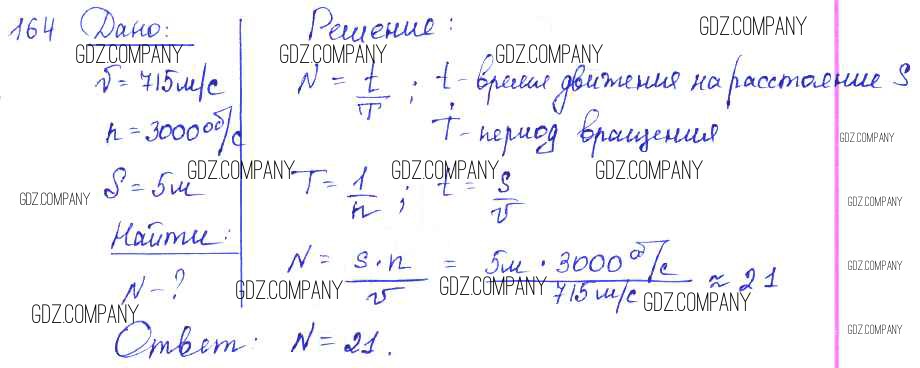 164 Дано: Решение:
GDZ.COMPANY GDZ.COMPANY GDZ.COMPANY GDZ.COMPANY
v = 715 м/с N = t/T ; t - время движения на расстояние S
n = 3000 об/с T - период вращения
GDZ.COMPANY
GDZ.COMPANY GDZ.COMPANY GDZ.COMPANY
S = 5м T = 1/n ; t = s/v
GDZ.COMPANY GDZ.COMPANY
Найти:
N - ? N = s·n/v = 5м · 3000 об/с / 715 м/с ≈ 21
GDZ.COMPANY
GDZ.COMPANY GDZ.COMPANY GDZ.COMPANY
GDZ.COMPANY
Ответ: N = 21.
GDZ.COMPANY